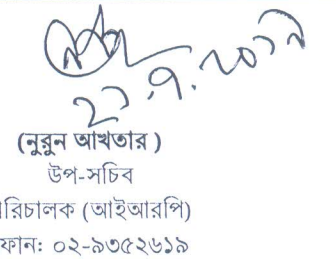 (নুরুন আখতার )
উপ-সচিব
রিচালক (আইআরপি)
ফান: ০২-৯৩৫২৬১৯